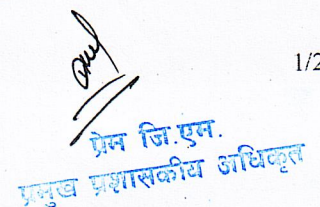 1/2
प्रेम जि.एम.
प्रमुख प्रशासकीय अधिकृत